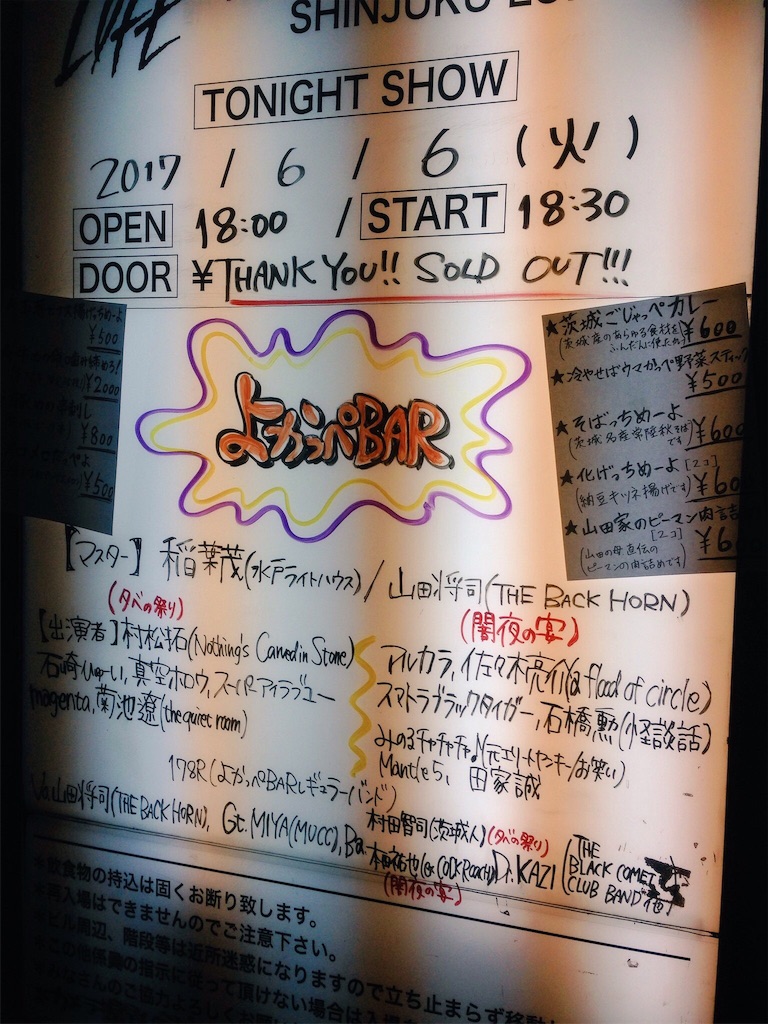 SHINJUKU
TONIGHT SHOW
2017 / 6 / 6 (火)
OPEN 18:00 / START 18:30
DOOR ¥THANK YOU!! SOLD OUT!!!
¥500
¥2000
¥800
¥500
よかっぺBAR
★茨城ごじゃっぺカレー
(茨城産のあらゆる食材を
ふんだんに使た) ¥600
★冷やせばウマカっぺ野菜スティック
¥500
★そばっちめーよ
(茨城名産常陸秋そば
です) ¥600
★化げっちめーよ [2コ]
(納豆キツネ揚げです)
★山田家のピーマン肉詰
[2コ]
(山田の母直伝の
ピーマンの肉詰めです)
【マスター】 稲葉茂(水戸ライトハウス) / 山田将司(THE BACK HORN)
(夕べの祭り)
【出演者】村松拓(Nothing's Carved in Stone)
石崎ひゅーい, 真空ホロウ, スーパーアイラブユー
magenta, 菊池遼(the quiet room)
(闇夜の宴)
アルカラ, 佐々木亮介(a flood of circle)
スマトラブラックタイガー, 石橋勲(怪談話)
みのるチャチャチャ♪(元エリートヤンキー/お笑い)
Mantle5, 田家誠
178R(よかっぺBARレギュラーバンド)
Vo.山田将司(THE BACK HORN), Gt.MIYA(MUCC), Ba.
村田智司(茨城人)(夕べの祭り)
(闇夜の宴)
Dr.KAZI (THE BLACK COMET CLUB BAND 他)
※飲食物の持込は固くお断り致します。
※再入場はできませんのでご注意下さい。
ビル周辺、階段等は近所迷惑になりますので立ち止まらず移動
この他係員の指示に従って頂けない場合は入場